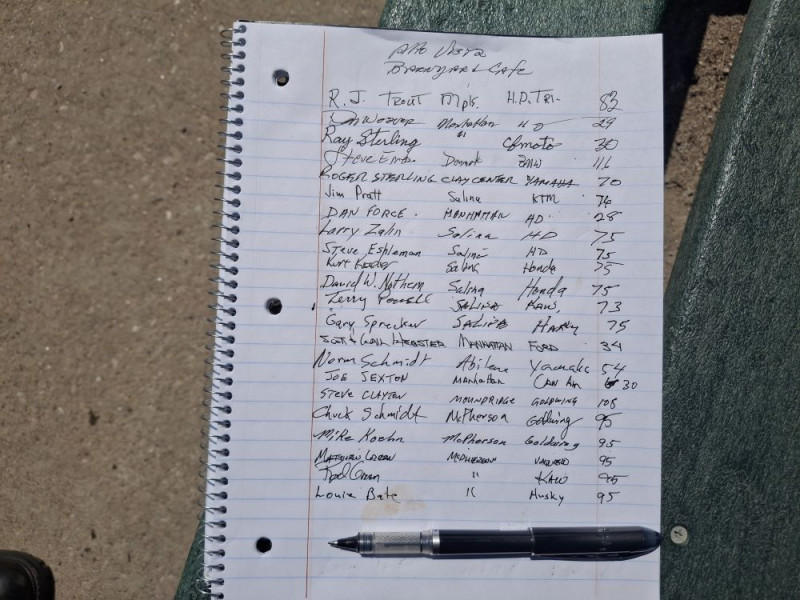 Alto Vista
Barnyard Cafe
R.J. Trout Mpk. H.D. Tri- 82
Weaver Manhattan HD 29
Ray Sterling " Cfmoto 30
Steve BMW 116
Roger Sterling Clay Center Yamaha 70
Jim Pratt Salina KTM 76
Dan Force Manhattan HD. 28
Larry Zalin Salina HD 75
Steve Eshleman Salina HD 75
Kurt Salina Honda 75
David W. Nothern Salina Honda 75
Terry Powell Salina Kaw. 73
Gary Sprecker Salina Harley 75
Scott & Gail Webster Manhattan Ford 34
Norm Schmidt Abilene Yamaha 54
Joe Sexton Manhattan Can Am 30
Steve Clayton Moundridge Goldwing 108
Chuck Schmidt McPherson Goldwing 95
Mike Koehn McPherson Goldwing 95
Matthew McPherson Vaquero 95
Rod " Kaw 95
Louie Bate " Husky 95